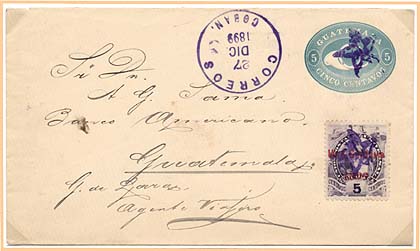 CORREOS
COBAN.
27
DIC
1899
GUATEMALA
5 5
CINCO CENTAVOS
Sr. Dn.
A. G. Sama.
Banco Americano.
Guatemala
G. de Zara.
Agente Viajero
1899
5